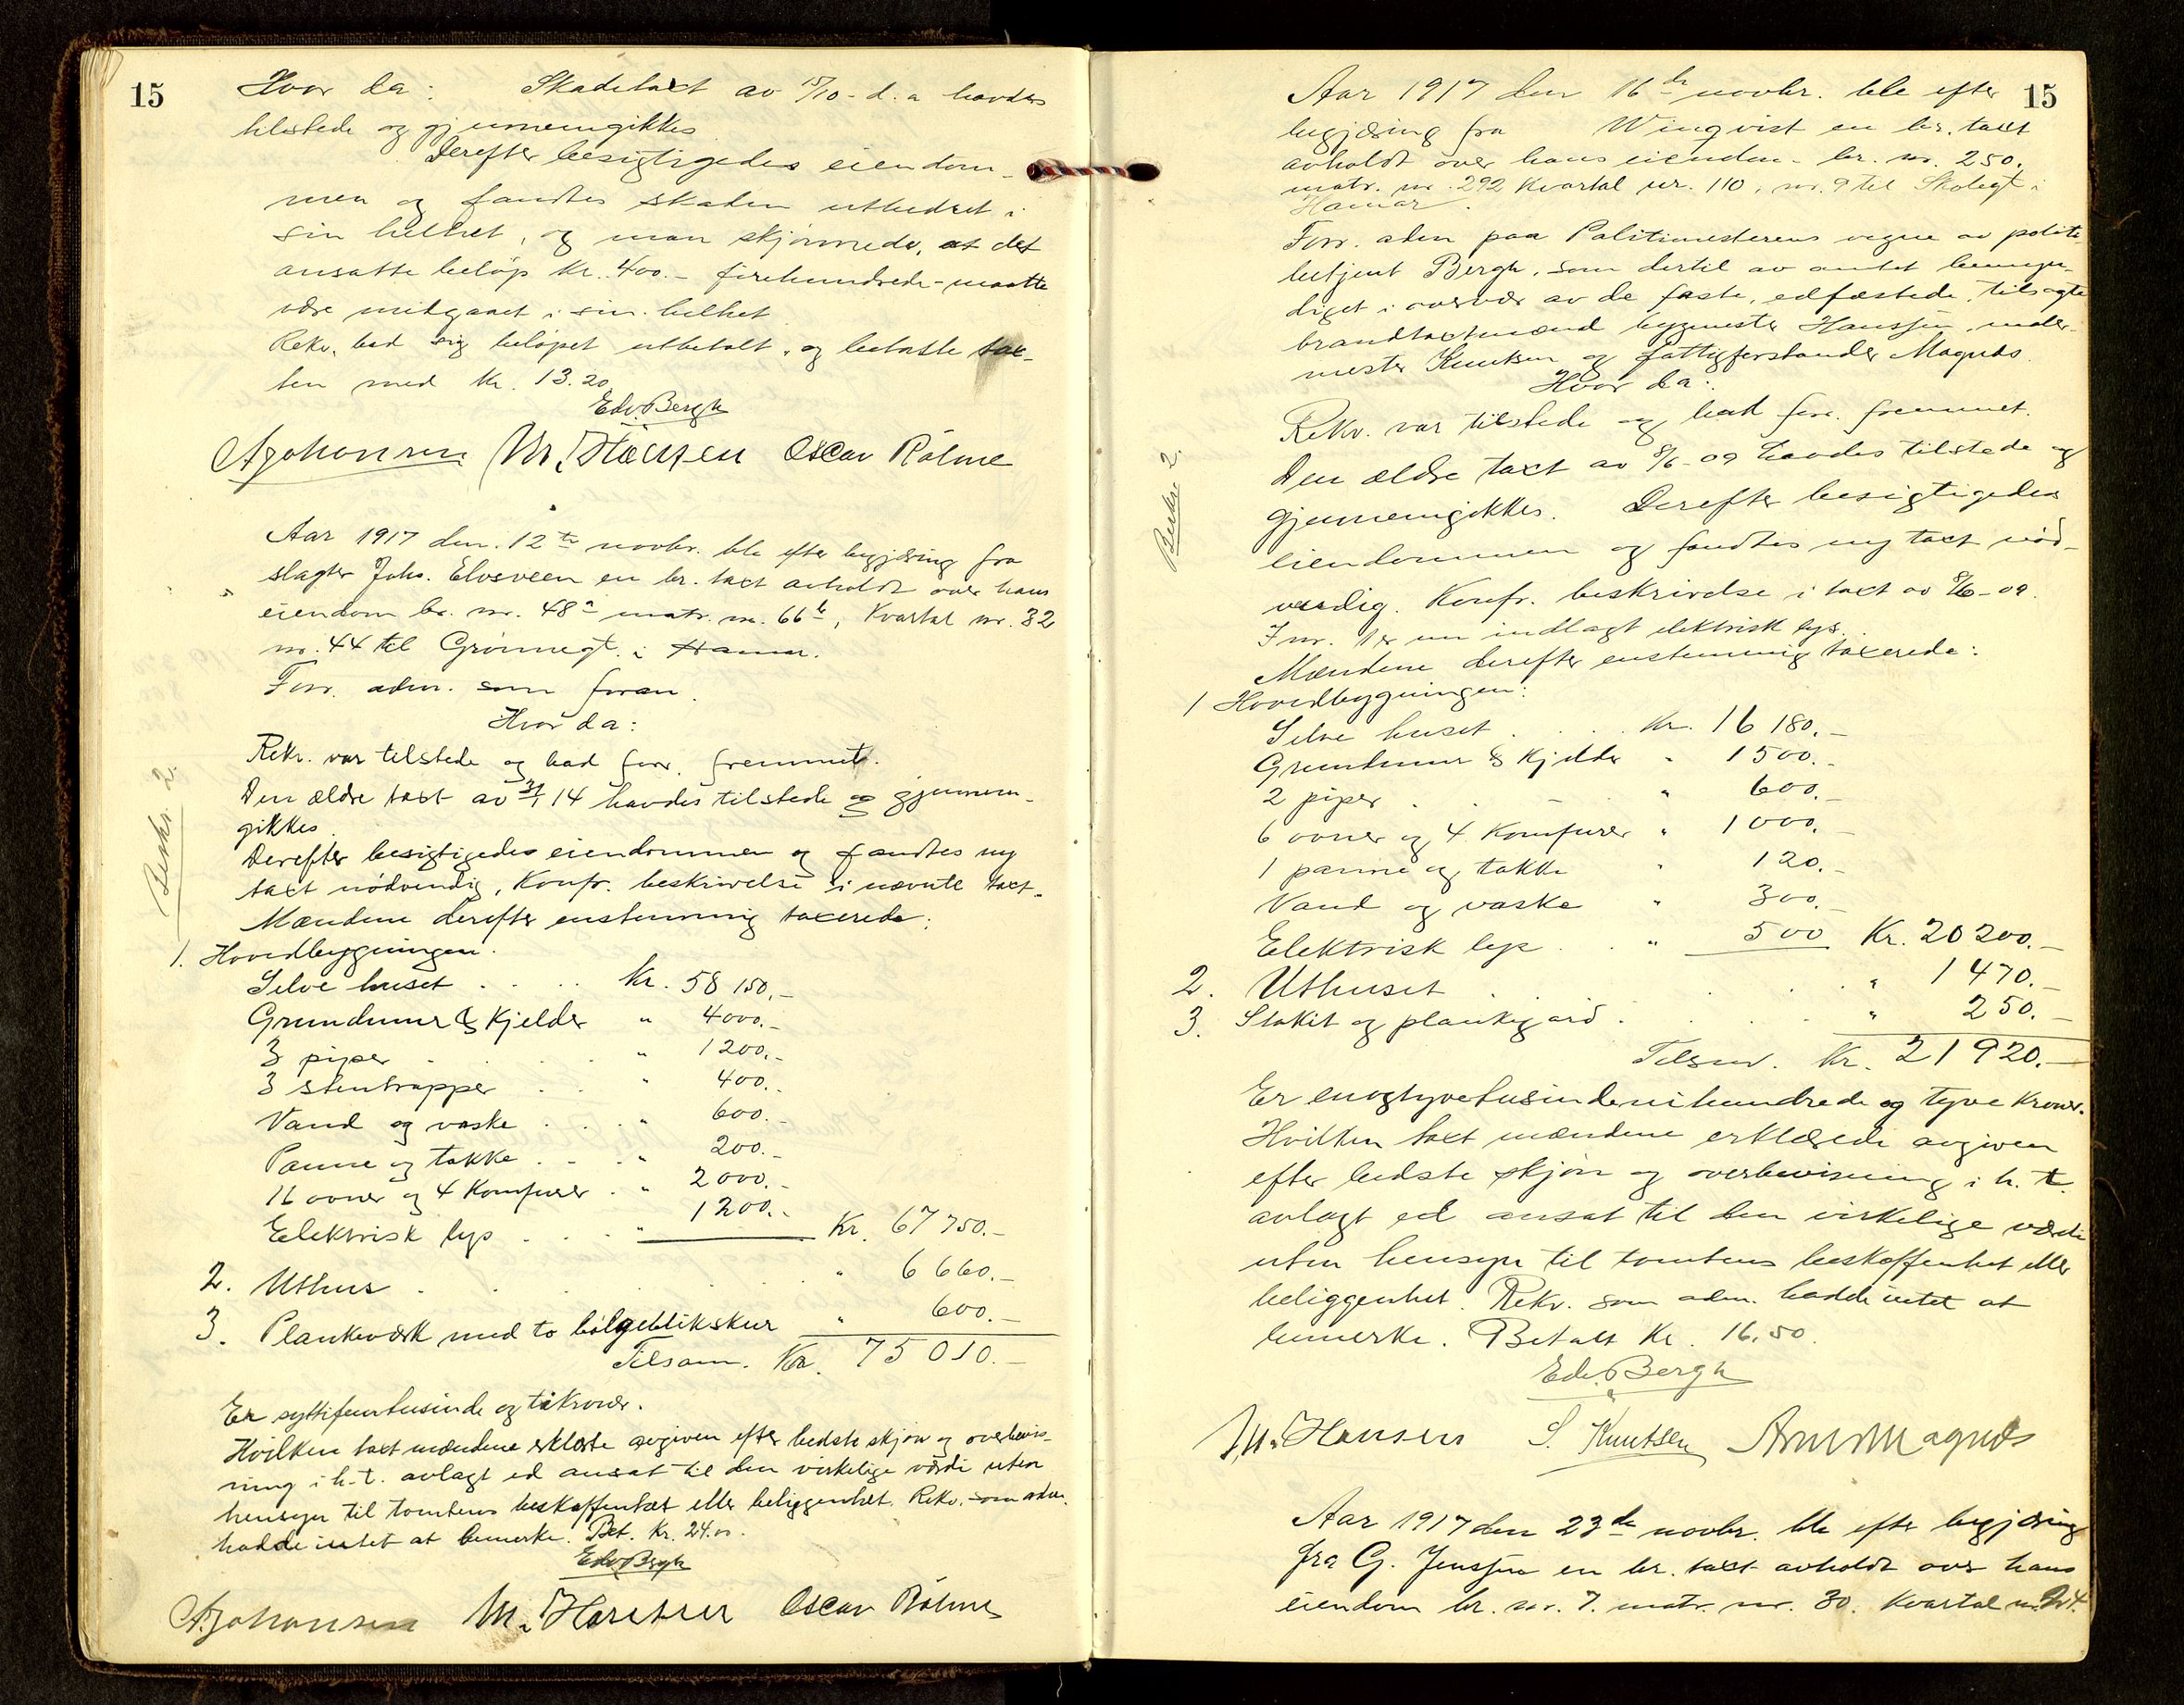 15
Hvor da: Skadetaxt av 15/10 - d.a havdes
tilstede og gjennemgikkes
Derefter besigtigedes eiendom-
men og fandtes skaden utbedret i
sin helhet, og man skjønnede, at det
ansatte beløp Kr. 400.- firehundrede - maatte
være medgaaet i sin helhet
Rekv. bad sig beløpet utbetalt, og betalte tax-
ten med Kr. 13.20
Edv. Bergh
A Johansen M. Hansen Oscar Rølme
Aar 1917 den 12te novbr. ble efter begjæring fra
slagter Johs. Elvsveen en br. taxt avholdt over hans
eiendom br. nr. 48a matr. nr. 66b, Kvartal nr. 32
nr. 44 til Grønnegt. i Hamar.
Forr. adm. som foran.
Hvor da:
Beskr. 2.
Rekv. var tilstede og bad forr. fremmet.
Den ældre taxt av 31/1 14 havdes tilstede og gjennem-
gikkes.
Derefter besigtigedes eiendommen og fandtes ny
taxt nødvendig, Konfr. beskrivelse i nævnte taxt.
Mændene derefter enstemmig taxerede:
1. Hovedbygningen.
Selve huset . . . . Kr. 58 150.-
Grundmur & Kjelder " 4000.-
3 piper . . . " 1200.-
3 stentrapper . . " 400.-
Vand og vaske . . . " 600.-
Panne og takke . . . " 200.-
16 ovner og 4 Komfurer . " 2000.-
Elektrisk lys . . . " 1200.- Kr. 67 750.-
2. Uthus . . . . . . " 6 660.-
3. Plankeværk med to bølgeblikskur " 600.-
Tilsam. Kr. 75 010.-
Er syttifemtusinde og ti kroner.
Hvilken taxt mændene erklærte avgiven efter bedste skjøn og overbevis-
ning i h. t. avlagt ed ansat til den virkelige værdi uten
hensyn til tomtens beskaffenhet eller beliggenhet. Rekv. som adm.
hadde intet at bemerke. Bet. Kr. 24.00.
Edv Bergh
A Johansen M. Hansen Oscar Rølme
15
Aar 1917 den 16de novbr. ble efter
begjæring fra Winqvist en br. taxt
avholdt over hans eiendom - br. nr. 250.
matr. nr. 292 Kvartal nr. 110, nr. 9 til Skolegt i
Hamar.
Forr. adm paa Politimesterens vegne av politi
betjent Bergh, som dertil av amtet bemyn-
diget i overvær av de faste, edfæstede, tilsagte
brandtaxtmænd bygmester Hanssen, maler-
mester Knutsen og fattigforstander Magnæs.
Hvor da:
Beskr. 2.
Rekv. var tilstede og bad forr. fremmet.
Den ældre taxt av 8/6 - 09 havdes tilstede og
gjennemgikkes. Derefter besigtigedes
eiendommen og fandtes ny taxt nød-
vendig. Konfr. beskrivelse i taxt av 8/6 - 09.
I nr. 1 er nu indlagt elektrisk lys.
Mændene derefter enstemmig taxerede:
1 Hovedbygningen:
Selve huset . . . . Kr. 16 180.-
Grundmur & Kjelder " 1500.-
2 piper . . . " 600.-
6 ovner og 4 Komfurer " 1000.-
1 panne og takke " 120.-
Vand og vaske " 300.-
Elektrisk lys . . " 500 Kr. 20 200.-
2. Uthuset . . . . " 1 470.-
3. Stakit og plankegjærd . . . " 250.-
Tilsam. Kr. 21 920.-
Er enogtyvetusindenihundrede og tyve Kroner.
Hvilken taxt mændene erklærede avgiven
efter bedste skjøn og overbevisning i h. t.
avlagt ed ansat til den virkelige værdi
uten hensyn til tomtens beskaffenhet eller
beliggenhet. Rekv. som adm. hadde intet at
bemerke. Betalt Kr. 16.50.
Edv. Bergh
M. Hansen S. Knutsen Arne Magnæs
Aar 1917 den 23de novbr. ble efter begjæring
fra G. Jenssen en br. taxt avholdt over hans
eiendom br. nr. 7. matr. nr. 30. Kvartal nr. 24.